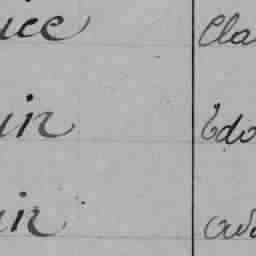 ice Cla
in Edo
in